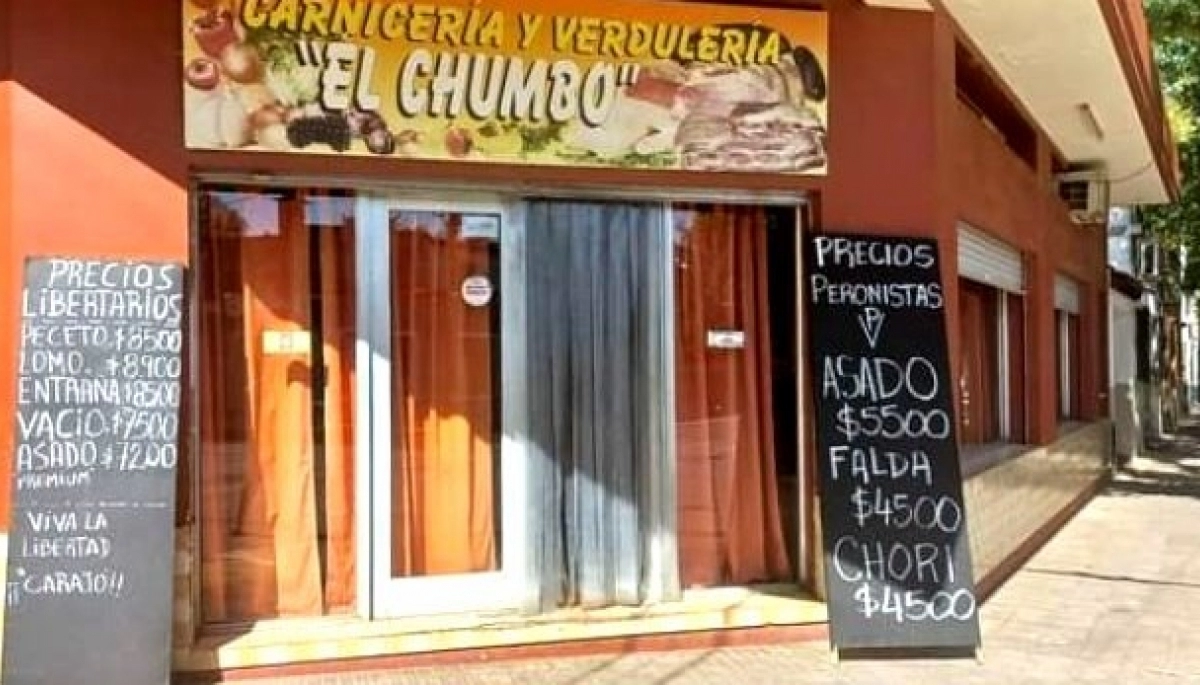 CARNICERÍA Y VERDULERÍA
"EL CHUMBO"
PRECIOS
LIBERTARIOS
PECETO. $8500
LOMO. $8900
ENTRAÑA $8500
VACIO. $7500
ASADO $7200
PREMIUM
VIVA LA
LIBERTAD
¡¡CARAJO!!
PRECIOS
PERONISTAS
P
V
ASADO
$5500
FALDA
$4500
CHORI
$4500